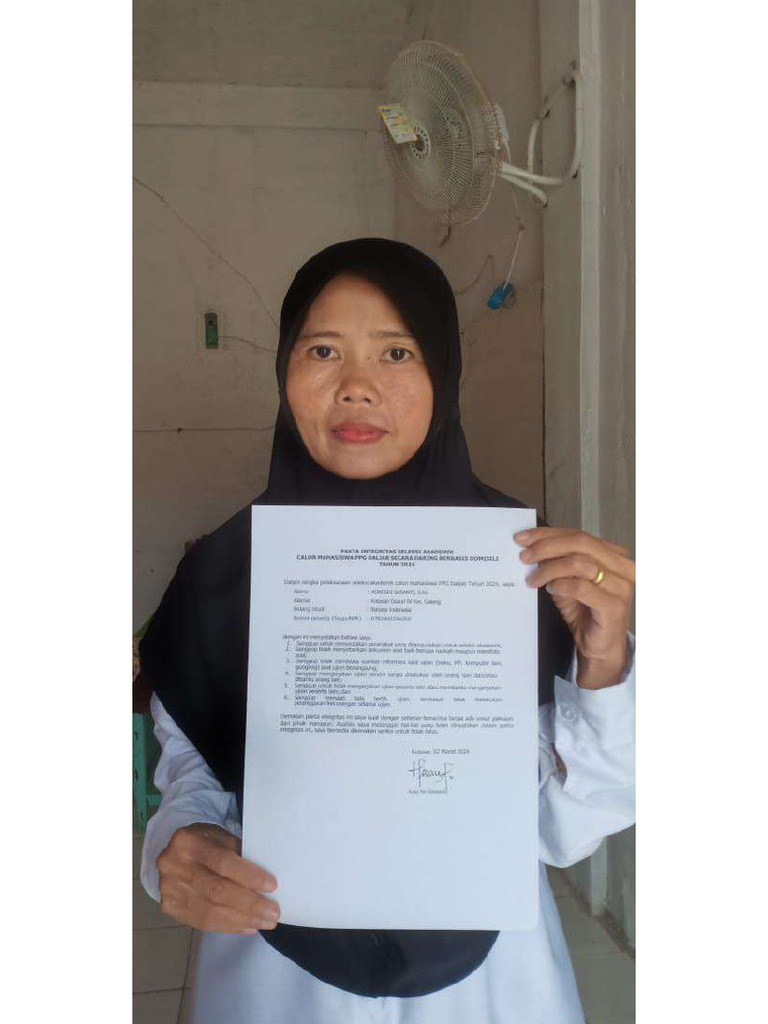 PAKTA INTEGRITAS SELEKSI AKADEMIK
CALON MAHASISWA PPG DALJAB SECARA DARING BERBASIS DOMISILI
TAHUN 2024
Dalam rangka pelaksanaan seleksi akademik calon mahasiswa PPG Daljab Tahun 2024, saya
Nama :
Alamat : Kec. Galang
Bidang Studi : Bahasa Indonesia
Nomor peserta (Simpa/NIM) :
dengan ini menyatakan bahwa saya.
1. Sanggup untuk menyediakan perangkat yang dipergunakan untuk seleksi akademik;
2. Sanggup tidak menyebarkan dokumen soal baik berupa naskah maupun memfoto
soal;
3. Sanggup tidak membuka sumber informasi saat ujian (buku, HP, komputer lain,
googling) saat ujian berlangsung;
4. Sanggup mengerjakan ujian sendiri tanpa diwakilkan oleh orang lain dan/atau
dibantu orang lain;
5. Sanggup untuk tidak mengerjakan ujian peserta lain atau membantu mengerjakan
ujian peserta lain; dan
6. Sanggup menaati tata tertib ujian, termasuk tidak melakukan
pelanggaran/kecurangan selama ujian.
Demikian pakta integritas ini saya buat dengan sebenar-benarnya tanpa ada unsur paksaan
dari pihak manapun. Apabila saya melanggar hal-hal yang telah dinyatakan dalam pakta
integritas ini, saya bersedia dikenakan sanksi untuk tidak lulus.
02 Maret 2024